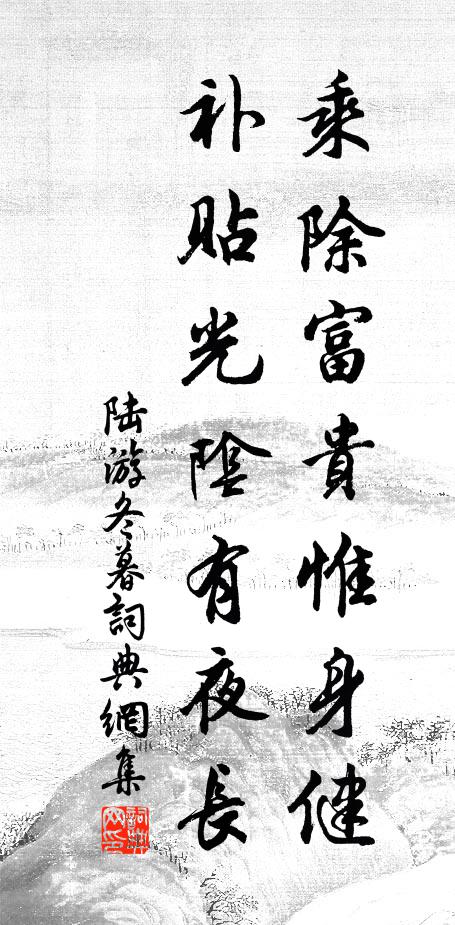 乘除富貴惟身健
补貼光陰有夜長
陆游冬暮詞典網集